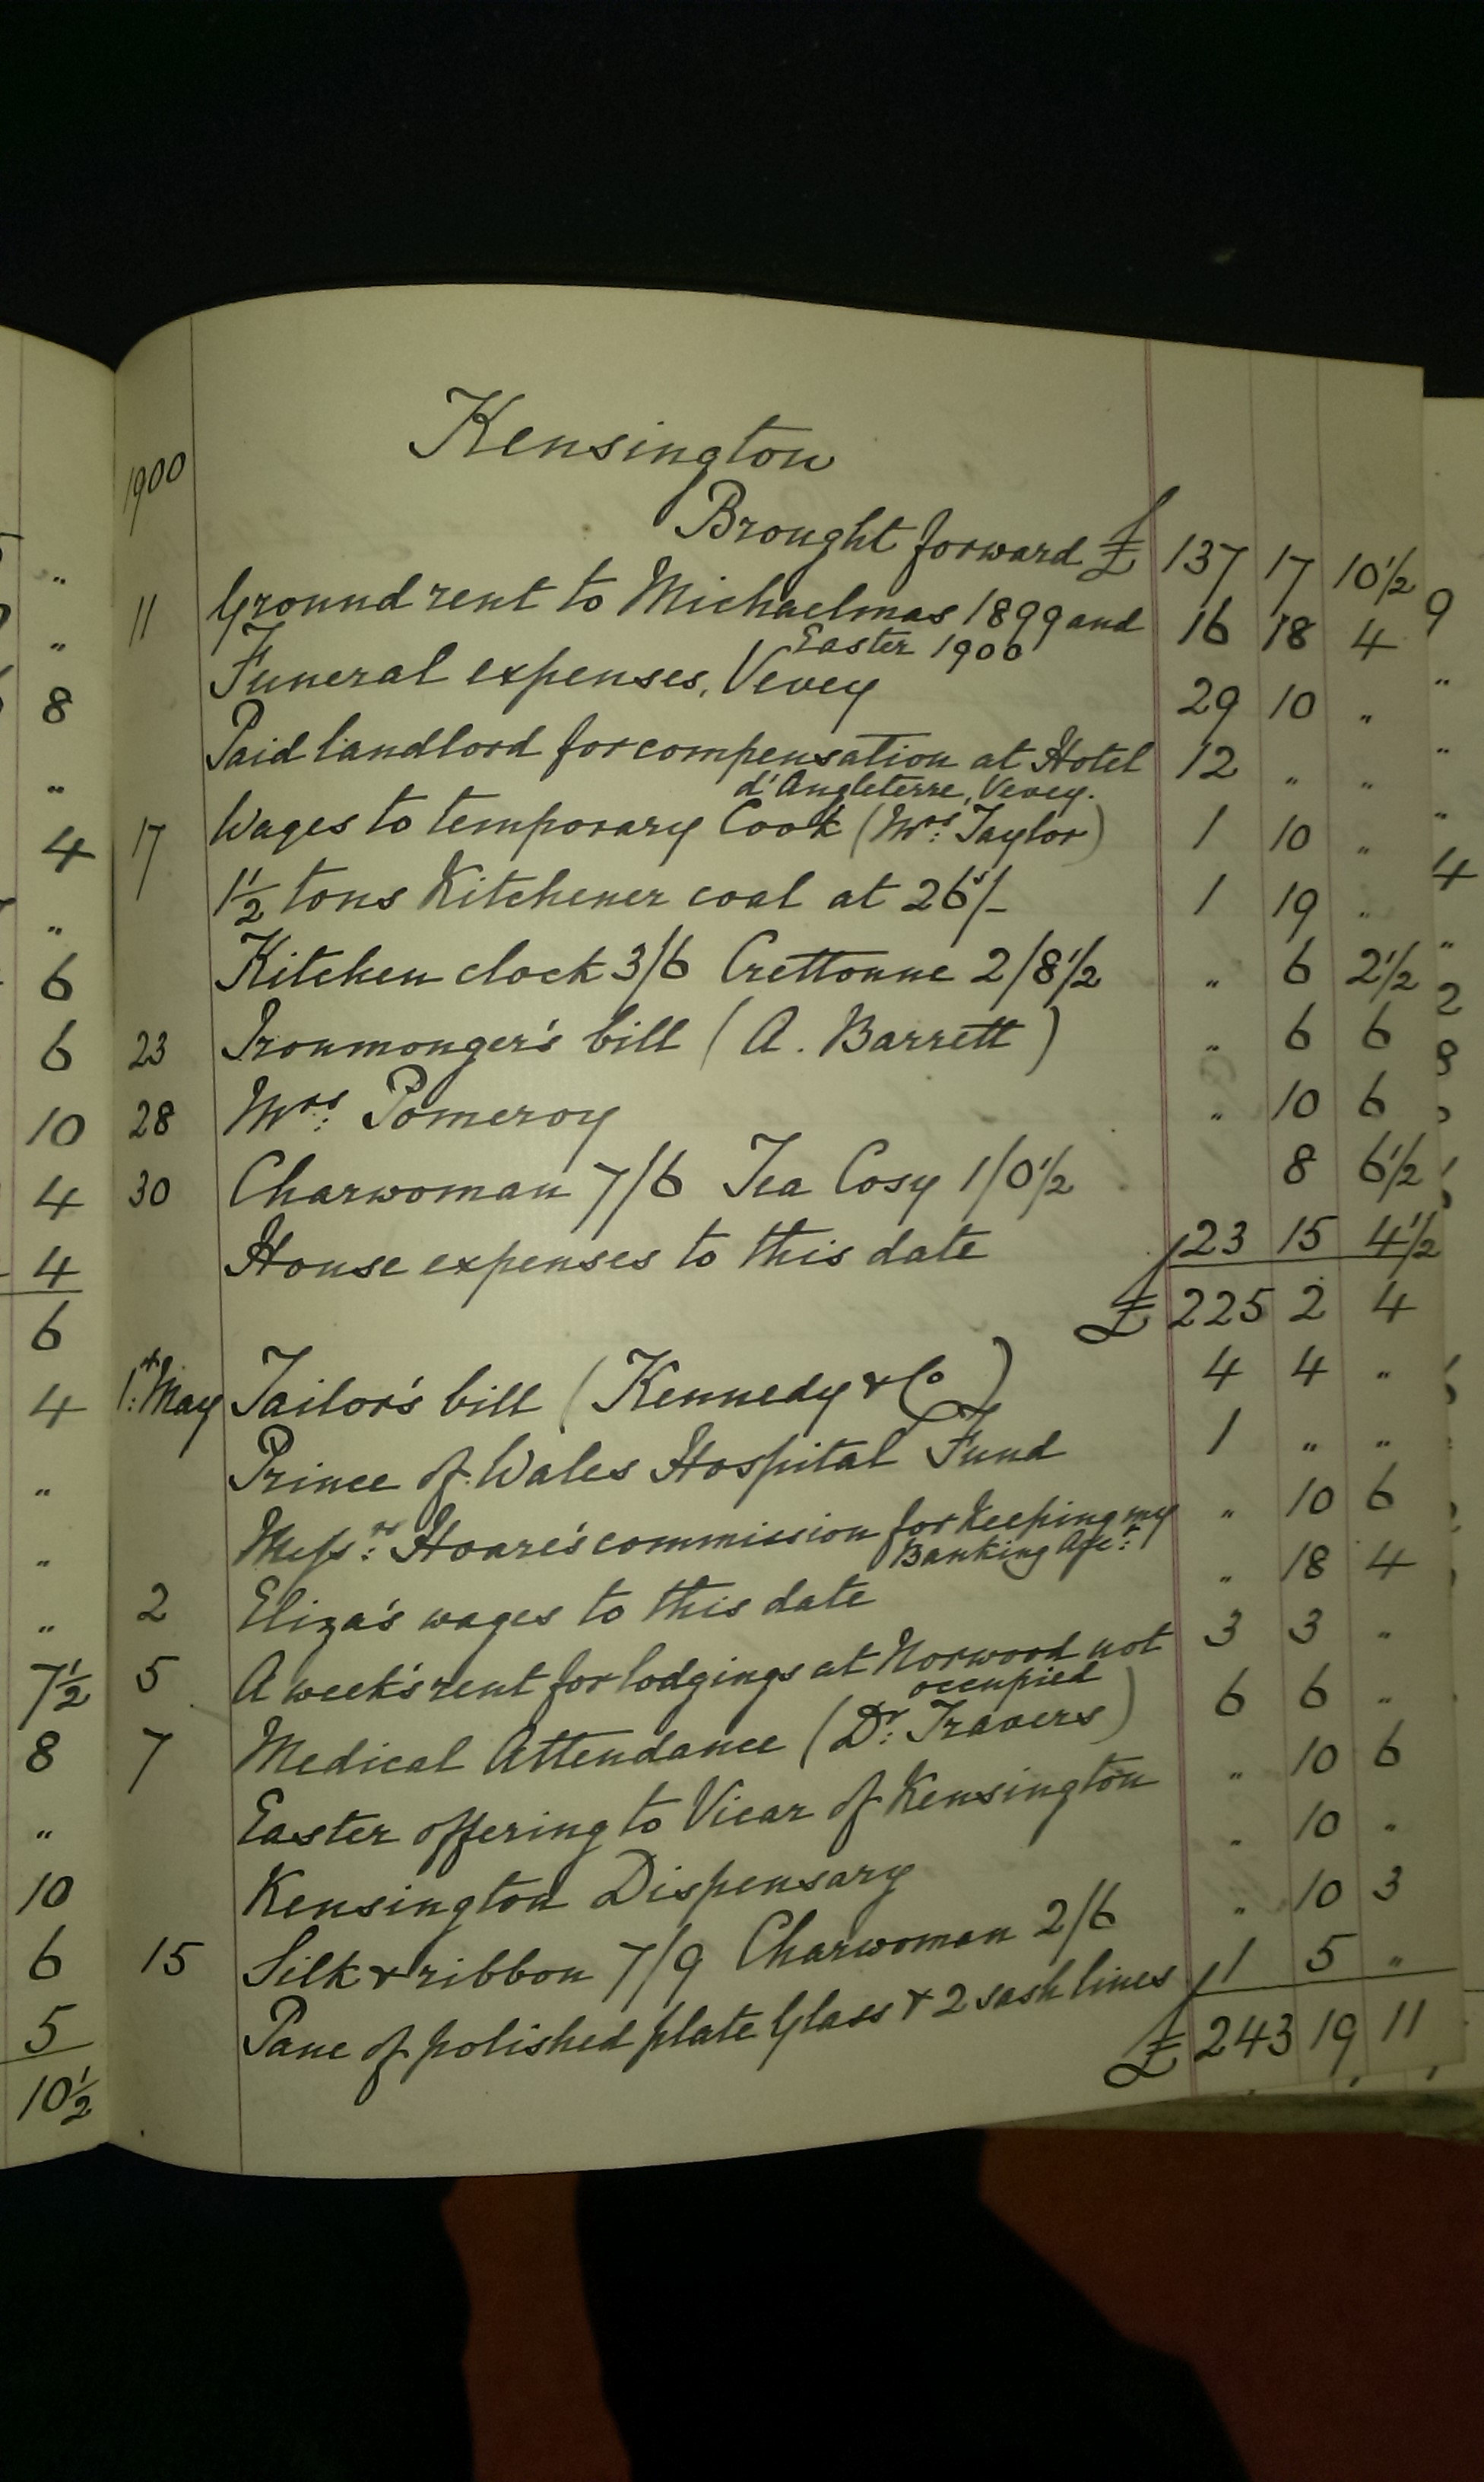 Kensington
1900
Brought forward £ 137 17 10½
11 Ground rent to Michaelmas 1899 and 16 18 4
Easter 1900
Funeral expenses, Vevey 29 10 "
Paid landlord for compensation at Hotel 12 " "
d'Angleterre, Vevey.
17 Wages to temporary Cook (Mrs: Taylor) 1 10 "
1½ tons Kitchener coal at 26s/- 1 19 "
Kitchen clock 3/6 Crettonne 2/8½ " 6 2½
23 Ironmonger's bill (A. Barrett) " 6 6
28 Mrs: Pomeroy " 10 6
30 Charwoman 7/6 Tea Cosy 1/0½ 8 6½
House expenses to this date 23 15 4½
£ 225 2 4
1st: May Tailor's bill (Kennedy & Co) 4 4 "
Prince of Wales Hospital Fund 1 " "
Messrs: Hoare's commission for Keeping my " 10 6
Banking Acct:
2 Eliza's wages to this date " 18 4
5 A week's rent for lodgings at Norwood not 3 3 "
occupied
7 Medical Attendance (Dr: Travers) 6 6 "
Easter offering to Vicar of Kensington " 10 6
Kensington Dispensary " 10 "
15 Silk & ribbon 7/9 Charwoman 2/6 " 10 3
Pane of polished plate Glass & 2 sash lines 1 5 "
£ 243 19 11
"
"
8
"
4
"
6
6
10
4
4
6
4
"
"
"
7½
8
"
10
6
5
10½
9
"
"
"
4
"
2
8